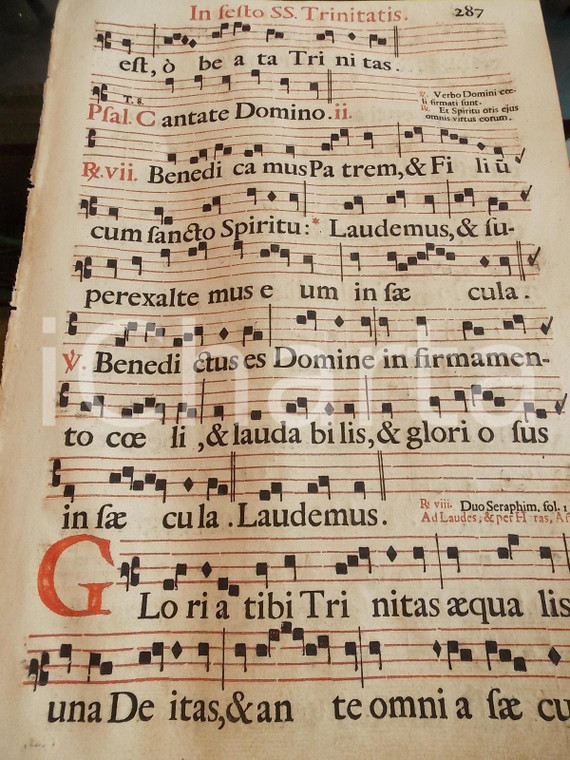 In feſto SS. Trinitatis. 287
eſt, ò be a ta Tri ni tas.
T. 8.
Pſal. C antate Domino. ii.
℣. Verbo Domini cœ-
li firmati ſunt.
℟. Et Spiritu oris ejus
omnis virtus eorum.
℟. vii. Benedi ca mus Pa trem, & Fi li ũ
cum ſancto Spiritu: * Laudemus, & ſu-
perexalte mus e um in ſæ cula.
℣. Benedi ctus es Domine in firmamen-
to cœ li, & lauda bi lis, & glori o ſus
in ſæ cu la. Laudemus.
℟. viii. Duo Seraphim, fol. 1
Ad Laudes, & per H ras, A
G Lo ri a tibi Tri nitas æqua lis
una De itas, & an te omni a ſæ cu
iCharta